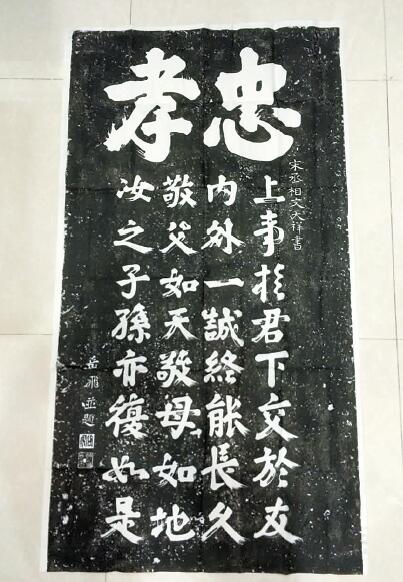 忠孝
宋丞相文天祥書
上事扵君下交於友
内外一誠終能長久
敬父如天敬母如地
汝之子孫亦復如是
岳飛並題